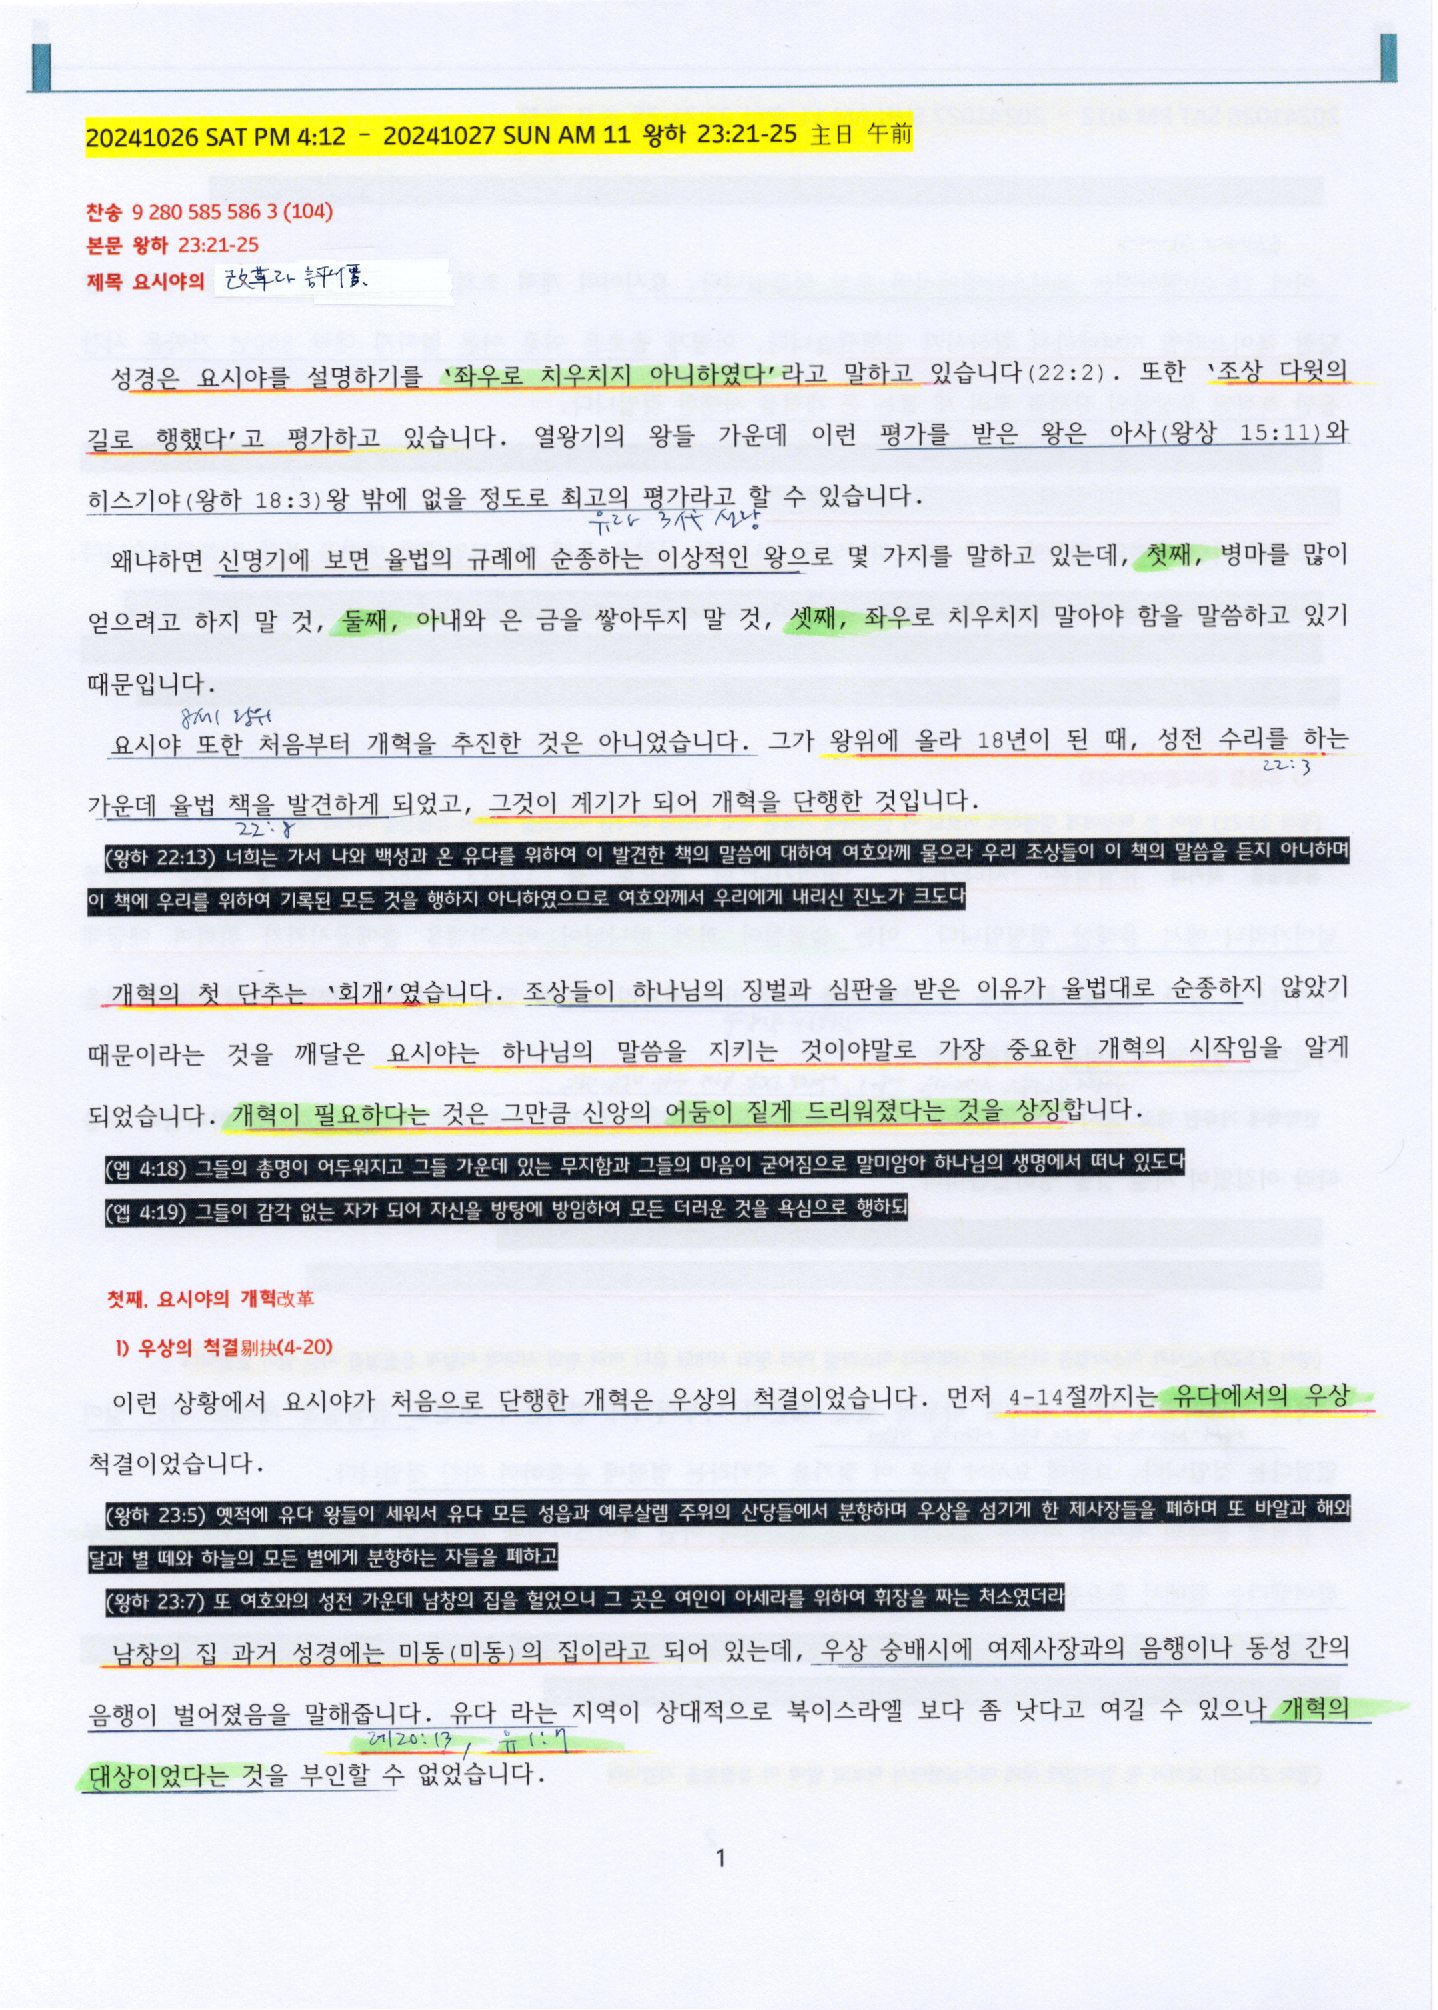 20241026 SAT PM 4:12 - 20241027 SUN AM 11 왕하 23:21-25 主日 午前
찬송 9 280 585 586 3 (104)
본문 왕하 23:21-25
제목 요시야의 改革과 評價
성경은 요시야를 설명하기를 ‘좌우로 치우치지 아니하였다’라고 말하고 있습니다(22:2). 또한 ‘조상 다윗의
길로 행했다’고 평가하고 있습니다. 열왕기의 왕들 가운데 이런 평가를 받은 왕은 아사(왕상 15:11)와
히스기야(왕하 18:3)왕 밖에 없을 정도로 최고의 평가라고 할 수 있습니다.
유다 3代 선왕
왜냐하면 신명기에 보면 율법의 규례에 순종하는 이상적인 왕으로 몇 가지를 말하고 있는데, 첫째, 병마를 많이
얻으려고 하지 말 것, 둘째, 아내와 은 금을 쌓아두지 말 것, 셋째, 좌우로 치우치지 말아야 함을 말씀하고 있기
때문입니다.
8세 왕위
요시야 또한 처음부터 개혁을 추진한 것은 아니었습니다. 그가 왕위에 올라 18년이 된 때, 성전 수리를 하는
22:3
가운데 율법 책을 발견하게 되었고, 그것이 계기가 되어 개혁을 단행한 것입니다.
22:8
(왕하 22:13) 너희는 가서 나와 백성과 온 유다를 위하여 이 발견한 책의 말씀에 대하여 여호와께 물으라 우리 조상들이 이 책의 말씀을 듣지 아니하며
이 책에 우리를 위하여 기록된 모든 것을 행하지 아니하였으므로 여호와께서 우리에게 내리신 진노가 크도다
개혁의 첫 단추는 ‘회개’였습니다. 조상들이 하나님의 징벌과 심판을 받은 이유가 율법대로 순종하지 않았기
때문이라는 것을 깨달은 요시야는 하나님의 말씀을 지키는 것이야말로 가장 중요한 개혁의 시작임을 알게
되었습니다. 개혁이 필요하다는 것은 그만큼 신앙의 어둠이 짙게 드리워졌다는 것을 상징합니다.
(엡 4:18) 그들의 총명이 어두워지고 그들 가운데 있는 무지함과 그들의 마음이 굳어짐으로 말미암아 하나님의 생명에서 떠나 있도다
(엡 4:19) 그들이 감각 없는 자가 되어 자신을 방탕에 방임하여 모든 더러운 것을 욕심으로 행하되
첫째. 요시야의 개혁改革
1) 우상의 척결剔抉(4-20)
이런 상황에서 요시야가 처음으로 단행한 개혁은 우상의 척결이었습니다. 먼저 4-14절까지는 유다에서의 우상
척결이었습니다.
(왕하 23:5) 옛적에 유다 왕들이 세워서 유다 모든 성읍과 예루살렘 주위의 산당들에서 분향하며 우상을 섬기게 한 제사장들을 폐하며 또 바알과 해와
달과 별 떼와 하늘의 모든 별에게 분향하는 자들을 폐하고
(왕하 23:7) 또 여호와의 성전 가운데 남창의 집을 헐었으니 그 곳은 여인이 아세라를 위하여 휘장을 짜는 처소였더라
남창의 집 과거 성경에는 미동(미동)의 집이라고 되어 있는데, 우상 숭배시에 여제사장과의 음행이나 동성 간의
음행이 벌어졌음을 말해줍니다. 유다 라는 지역이 상대적으로 북이스라엘 보다 좀 낫다고 여길 수 있으나 개혁의
레20:13, 유1:7
대상이었다는 것을 부인할 수 없었습니다.
1